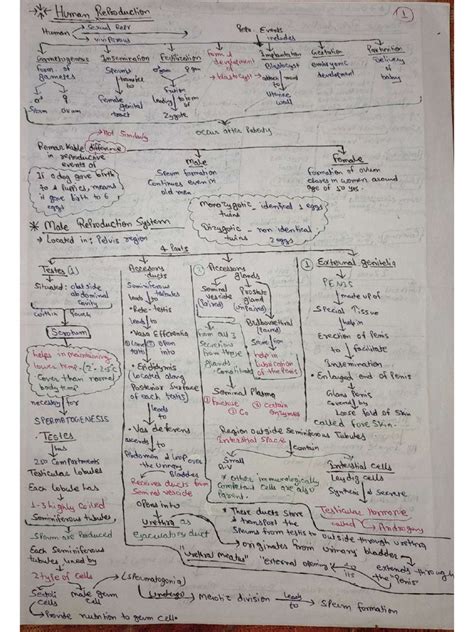 * Human Reproduction
1
Human → Sexual Repr
→ Viviparous
Repr. Events
includes
Gametogenesis
Insemination
Fertilisation
Implantation
Gestation
Parturition
Form of gametes
Sperms transfer to Female genital tract
Fusion leading to form of Zygote
Blastocyst
Uterine wall
embryonic development
Delivery of baby
Sperm
Ovum
occur after Puberty
Remarkable difference
in reproductive events of
Male
Female
Sperm formation
Continues even in
old men
Formation of ovum
ceases in women around
age of 50 yrs.
If a dog gave birth
to 6 puppies, means
it gave birth to 6
eggs
Monozygotic twins - identical 1 eggs
Dizygotic twins - non identical 2 eggs
* Male Reproduction System
→ Located in: Pelvis region
4 Parts
Testes
Accessory ducts
Accessory glands
External genitelia
Situated: outside
abdominal cavity
within Pouch
Scrotum
helps in maintaining
lower temp. (2-2.5°C
lower than normal
body temp
necessary for
SPERMATOGENESIS
Testes
has
250 Compartments
Testicular lobules
Each lobule has
1-3 highly coiled
Seminiferous tubules
Sperm are Produced
Each Seminiferous
tubules lined by
2 type of cells
Sertoli cells
male germ cell
(Spermatogonia)
→ Provide nutrition to germ cells
undergo
Meiotic division
leads to
Sperm formation
Seminiferous tubules
leads to
Rete-testis
lead to
Vasa Efferentia
Epididymis
located along
Posterior Surface
of each testis
leads to
Vas deferens
ascends to
Abdomen & loop over
the Urinary Bladder
Receives ducts from
Seminal vesicle
opens into
Urethra as
ejaculatory duct
Seminal vesicle (Paired)
Prostate gland (unpaired)
Bulbourethral (Paired)
Secretion
help in
lubrication
of the Penis
Seminal Plasma
Fructose
Ca
Certain enzymes
Region outside Seminiferous Tubules
Interstitial Space
contain
Small B.V
Interstitial Cells
Leydig cells
Synthesis & Secrete
Testicular Hormone
called Androgens
Other immunologically
Competent Cells are also
Present.
PENIS
made up of
Special Tissue
help in
Erection of Penis
to facilitate
Insemination
Enlarged end of Penis
Glans Penis
Covered by
Loose fold of Skin
called Fore Skin.
These ducts Store
& transport the
Sperms from testis to outside through urethra
originates from urinary bladder
extends through
the "Penis"
"External opening"
"Urethral meatus"